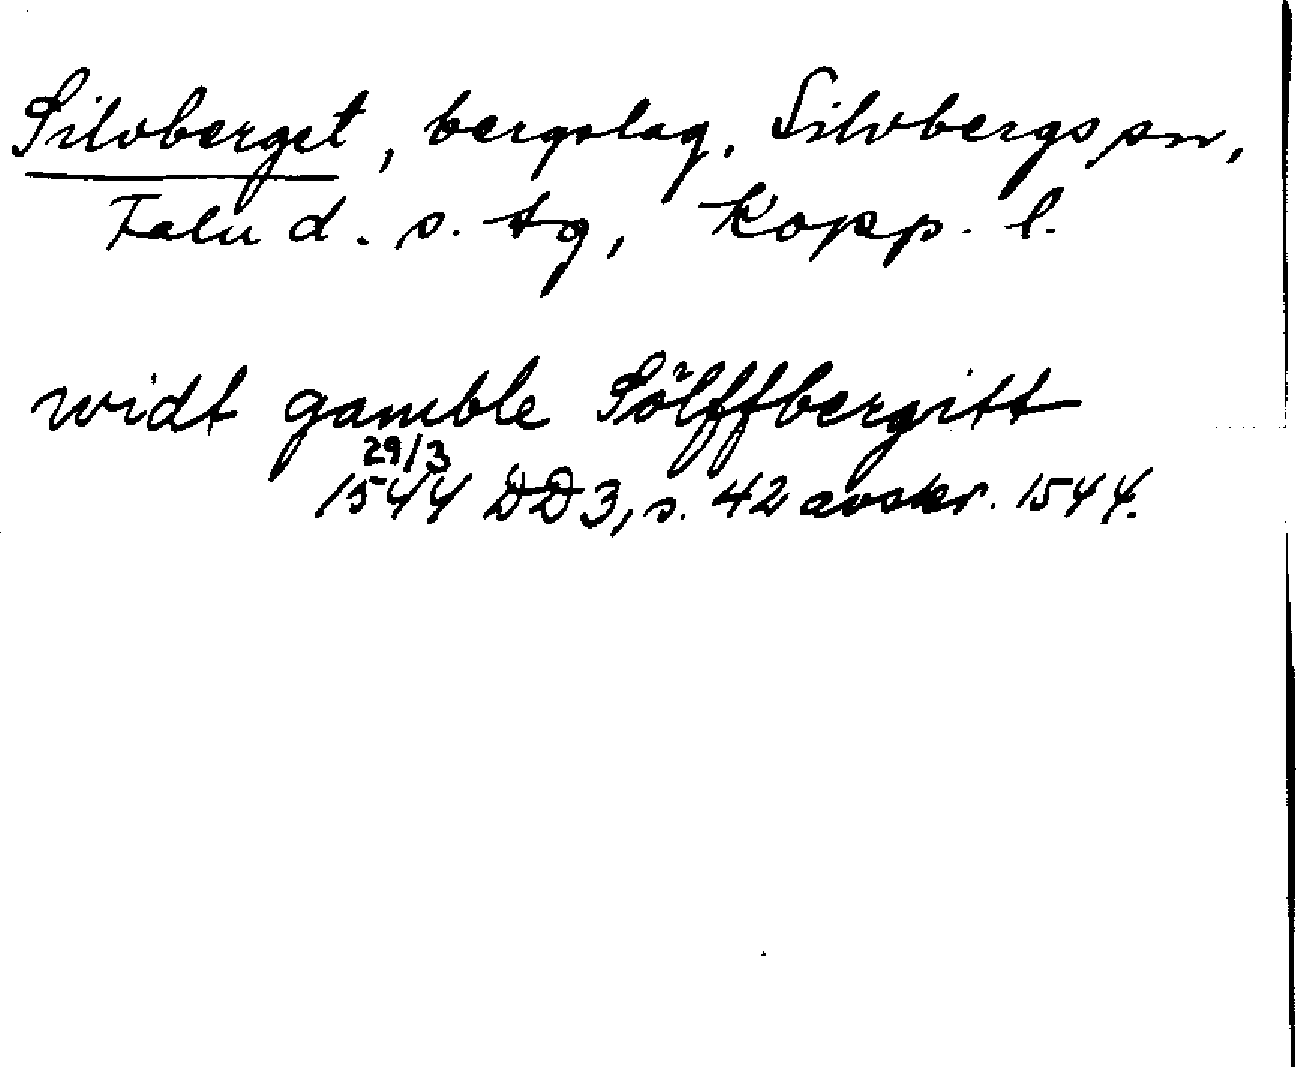 Silvberget, bergslag, Silvbergs sn,
Falu d. s. tg, Kopp. l.
widt gamble Sölffbergitt
29/3
1544 DD3, s. 42 avskr. 1544.